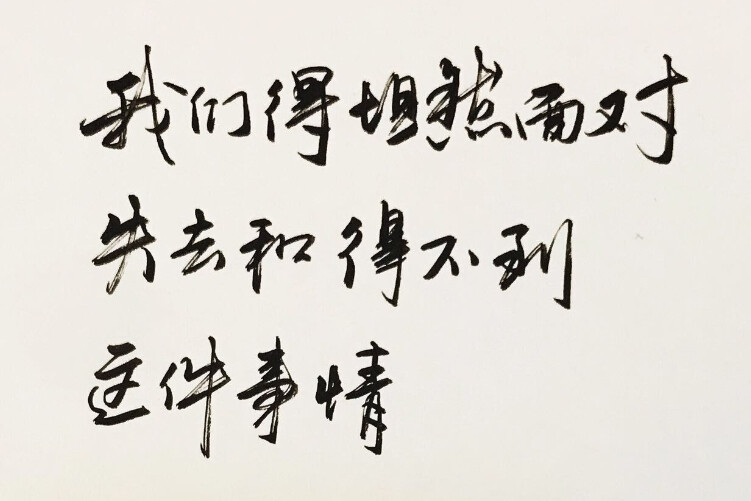 我们得坦然面对
失去和得不到
这件事情